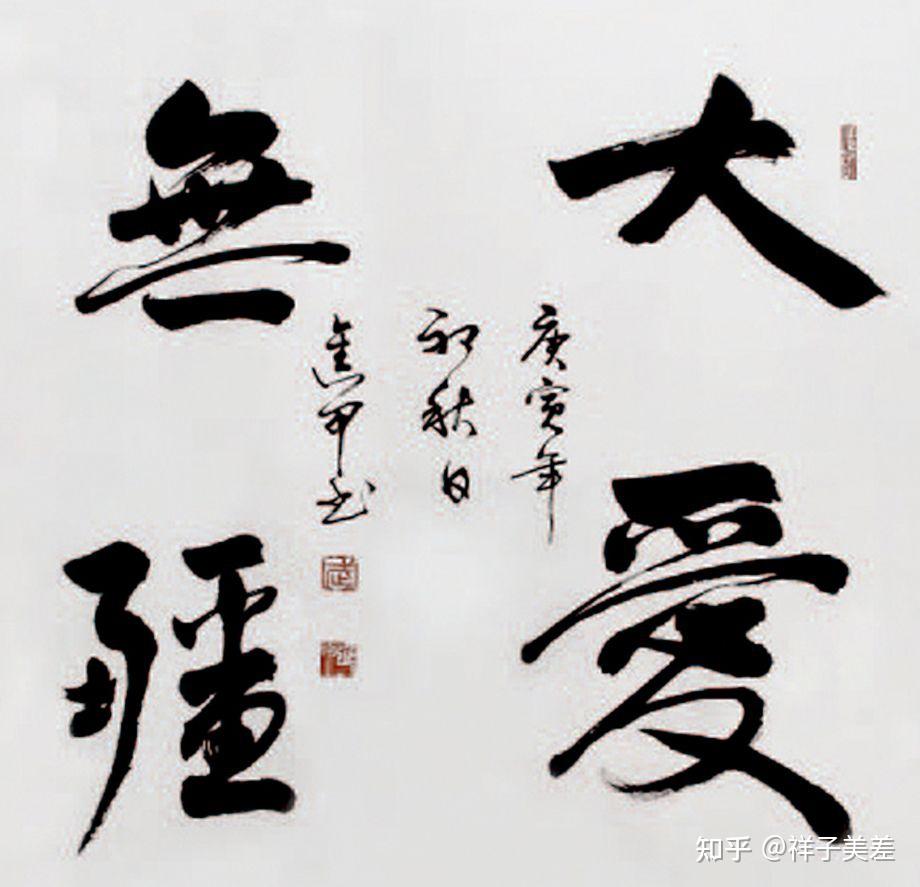 大愛
無疆
庚寅年
初秋日
甲書
知乎 @祥子美差